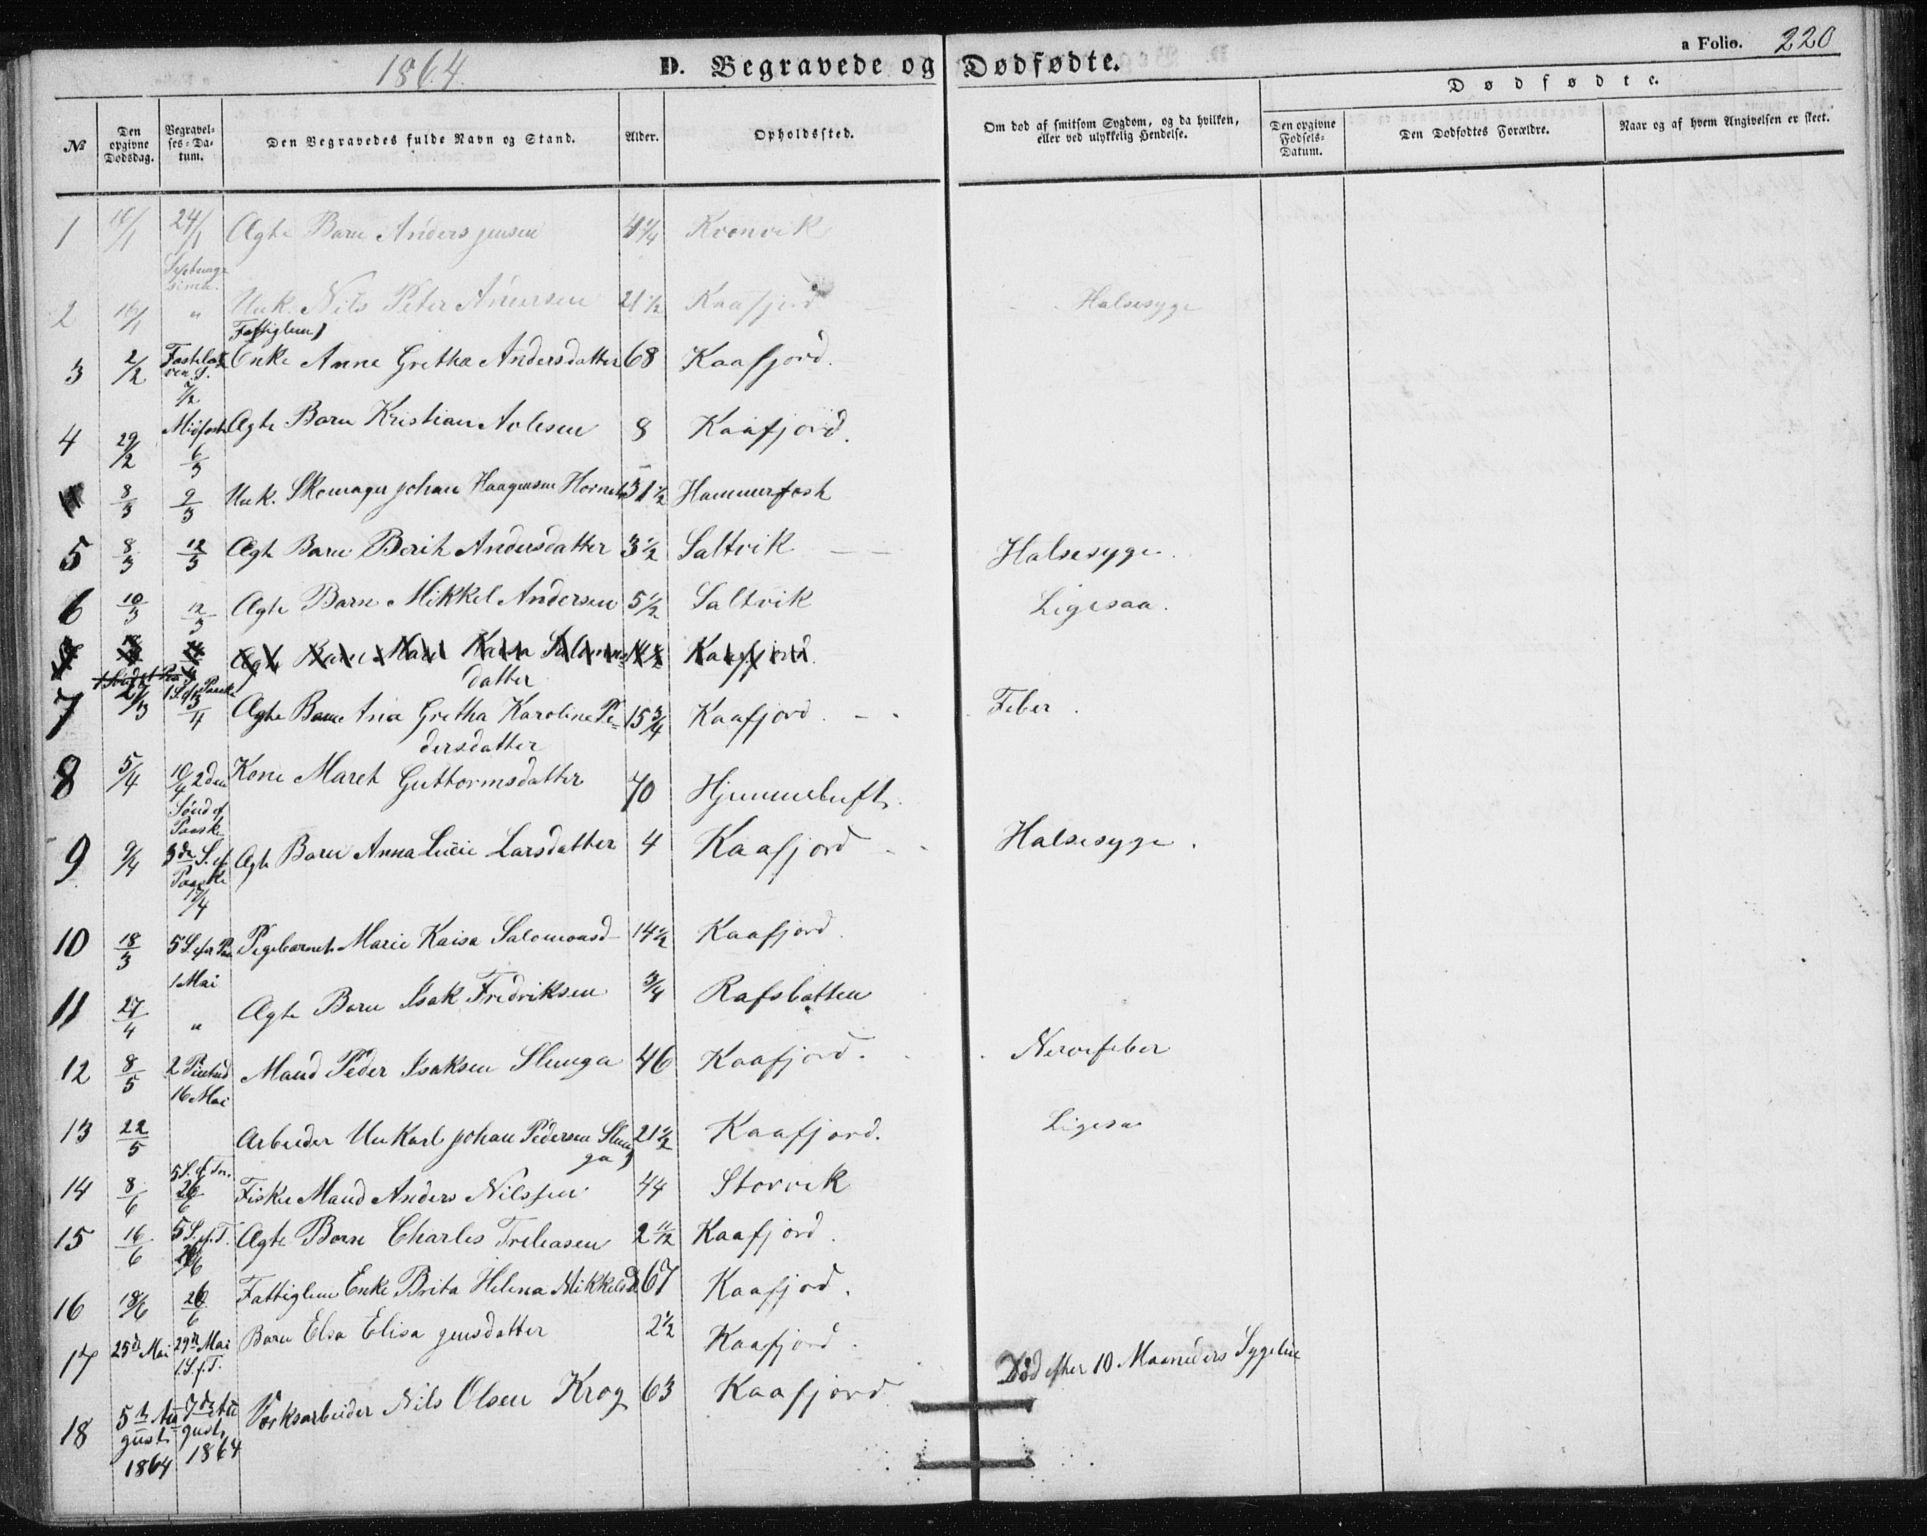 1864. D. Begravede og Dødfødte. a Folio. 220
Dødfødte.
№ Den opgivne Dødsdag. Begravelses-Datum. Den Begravedes fulde Navn og Stand. Alder. Opholdssted. Om død af smitsom Sygdom, og da hvilken, eller ved ulykkelig Hendelse. Den opgivne Fødsels-Datum. Den Dødfødtes Forældre. Naar og af hvem Angivelsen er skeet.
1 16/1 24/1 Ægte Barn Anders Jensen 4 1/4 Kvenvik
Septuagesima.
2 16/1 " Unk. Nils Peter Andersen 21 1/2 Kaafjord Halsesyge
Fattiglem)
3 2/2 Fastelavens S. 7/2 Enke Anne Gretha Andersdatter 68 Kaafjord.
4 29/2 Midfaste 6/3 Ægte Barn Kristian Aolesen 8 Kaafjord.
8/3 9/3 Unk. Skomager Johan Haagensen 31 1/2 Hammerfest
5 8/3 12/3 Ægte Barn Berit Andersdatter 3 1/2 Saltvik — — Halsesyge.
6 10/3 12/3 Ægte Barn Mikkel Andersen 5 1/2 Saltvik Ligesaa.
Ægte Barn Kaisa Salomons Kaafjord.
datter
7 27/3 1 S. ef. Paaske 3/4 Ægte Barn Ana Gretha Karoline Pe- 15 3/4 Kaafjord. - - Feber.
dersdatter
8 5/4 10/4 2den Sønd. ef. Paaske Kone Maret Guttormsdatter 70 Hjemmeluft.
9 9/4 3de S. ef. Paaske 17/4 Ægte Barn Anna Lucie Larsdatter 4 Kaafjord - - Halsesyge.
10 18/3 5 S. ef. Pa Pigebarnet Marie Kaisa Salomonsd 14 1/2 Kaafjord.
1 Mai
11 27/4 " Ægte Barn Isak Fredriksen 3/4 Rafsbotten
12 8/5 2 Pintsd 16 Mai Mand Peder Isaksen Slunga 46 Kaafjord. Nervefeber
13 22/5 Arbeider Un Karl Johan Pedersen Slun 21 1/2 Kaafjord. Ligesaa
ga)
14 8/6 5 S. ef. Tr. 26/6 Fisker Mand Anders Nilssen 44 Storvik
15 16/6 5 S. ef. T. 26/6 Ægte Barn Charles Treleasen 2 11/12 Kaafjord.
16 18/6 26/6 Fattiglem Enke Brita Helena Mikkelsd 67 Kaafjord.
17 25de Mai 29de Mai 1. S. f. T. Barn Elsa Elisa Jensdatter 2 1/2 Kaafjord.
18 5te August 1864 7de August 1864 Værksarbeider Nils Olsen Krog 63 Kaafjord Død efter 10 Maaneders Sygeleie